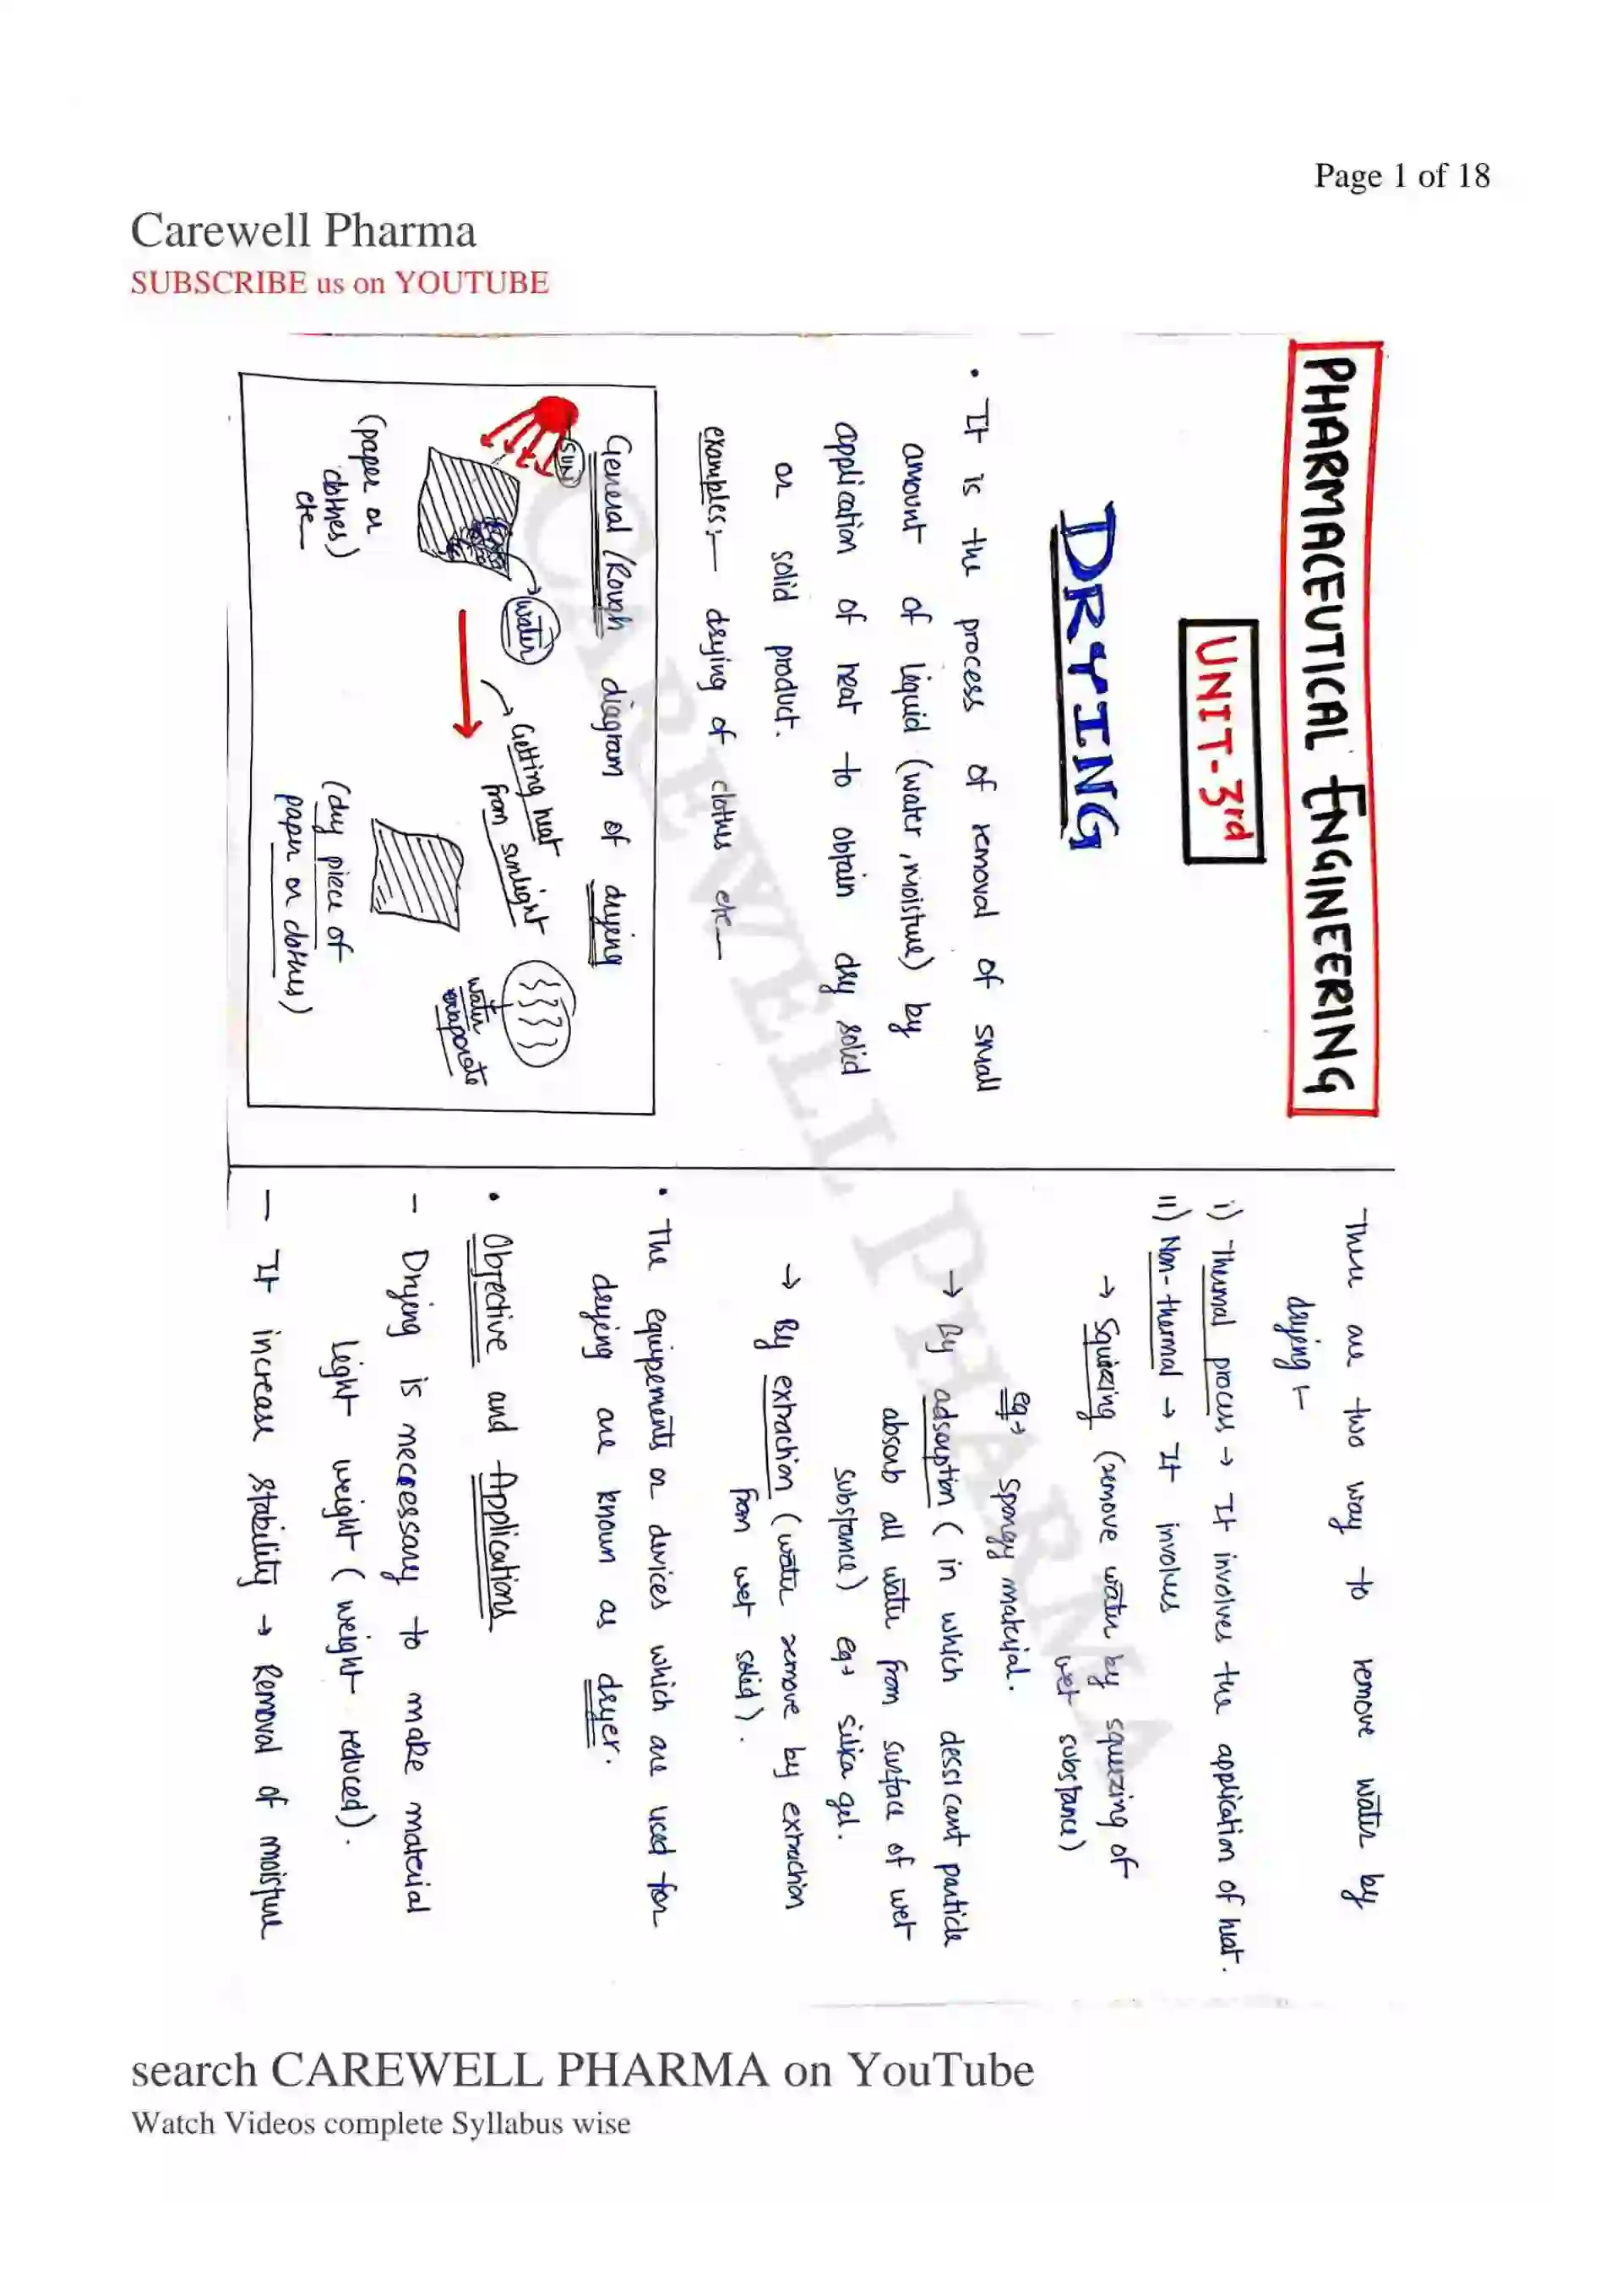 Page 1 of 18
Carewell Pharma
SUBSCRIBE us on YOUTUBE
PHARMACEUTICAL ENGINEERING
UNIT-3rd
DRYING
• It is the process of removal of small
amount of liquid (water, moisture) by
application of heat to obtain dry solid
or solid product.
examples:- drying of clothes etc-
General/Rough diagram of drying
SUN
water
(paper or
clothes)
etc-
Getting heat
from sunlight
water
evaporate
(dry piece of
paper or clothes)
There are two way to remove water by
drying:-
i) Thermal process → It involves the application of heat.
ii) Non-thermal → It involves
→ Squizing (remove water by squizing of
wet substance)
eg→ spongy material.
→ By adsorption (in which dessicant particle
absorb all water from surface of wet
substance) eg→ silica gel.
→ By extraction (water remove by extraction
from wet solid).
• The equipements or devices which are used for
drying are known as dryer.
• Objective and Applications
- Drying is necressary to make material
light weight (weight reduced).
- It increase stability → Removal of moisture
CAREWELL PHARMA
search CAREWELL PHARMA on YouTube
Watch Videos complete Syllabus wise